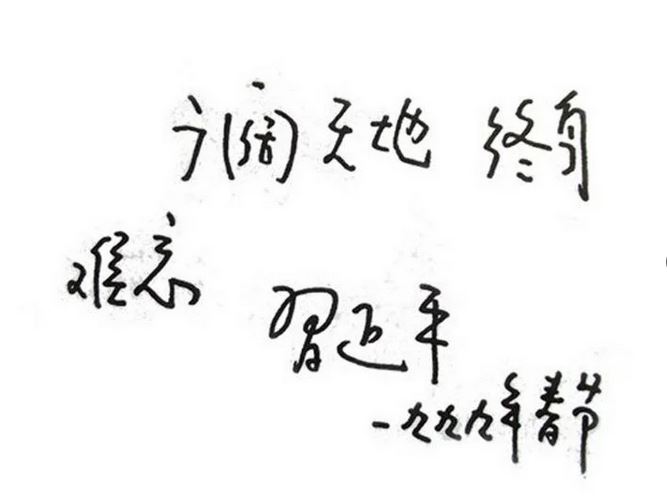 广阔天地 终身
难忘
習近平
一九九九年春节